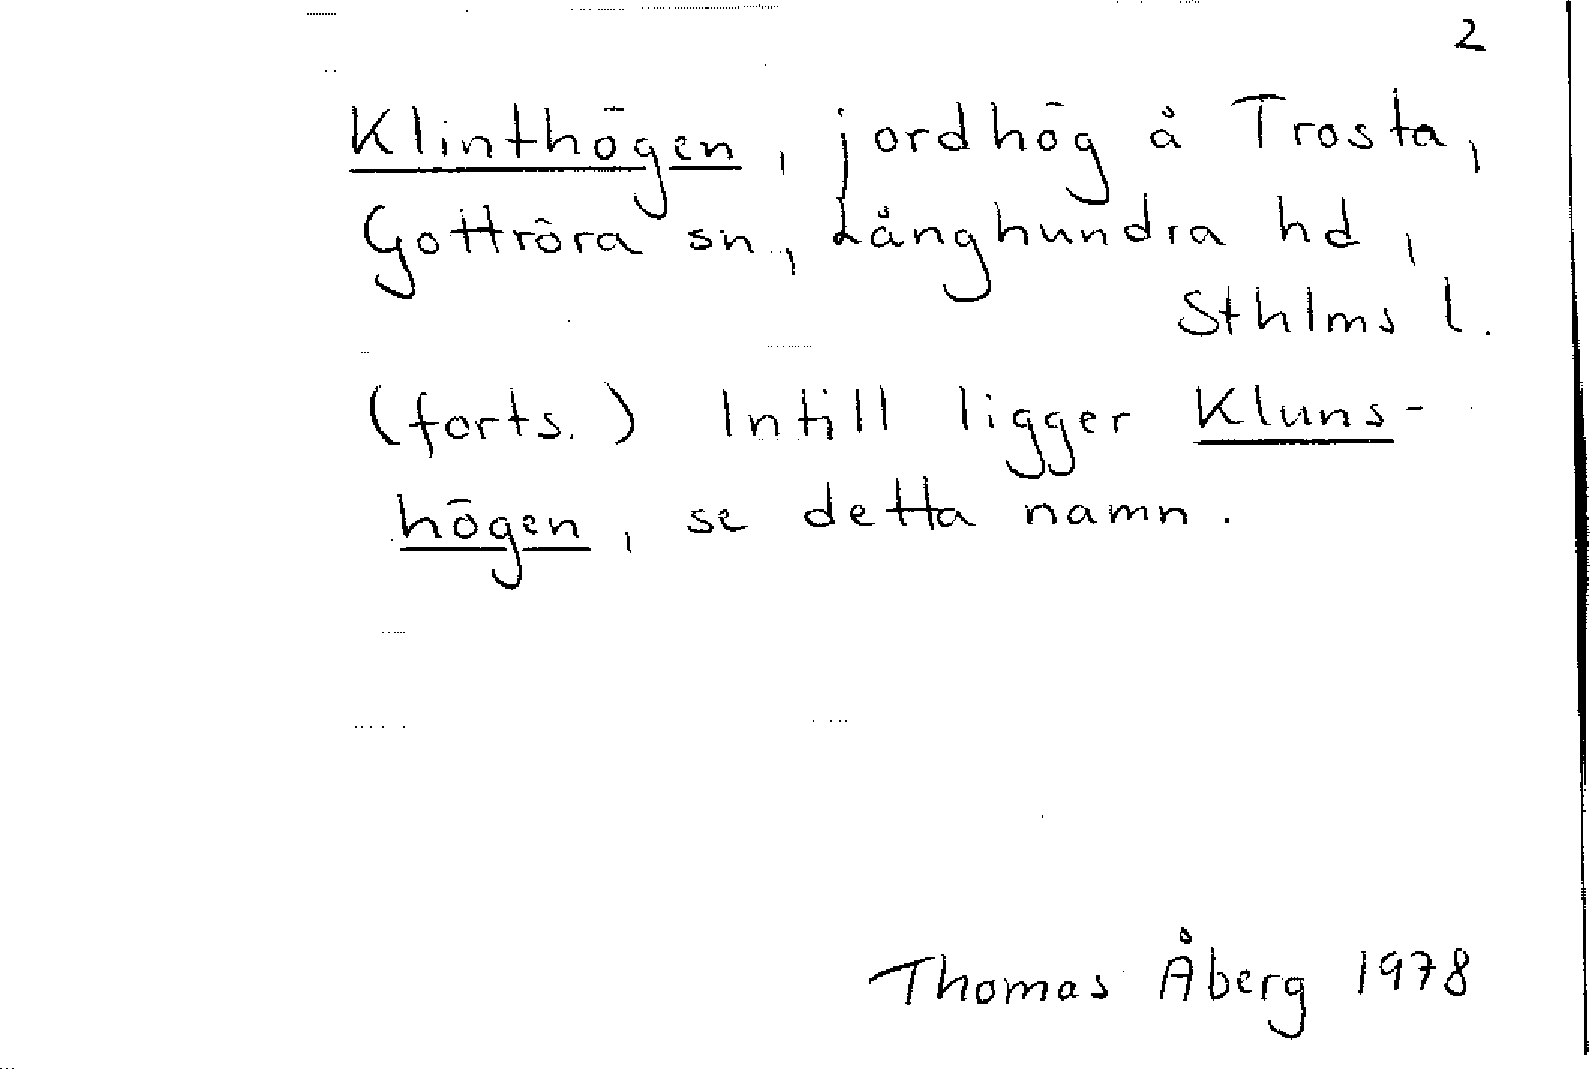 2
Klinthögen, jordhög å Trosta,
Gottröra sn., Långhundra hd,
Sthlms l.
(forts.) Intill ligger Kluns-
högen, se detta namn.
Thomas Åberg 1978